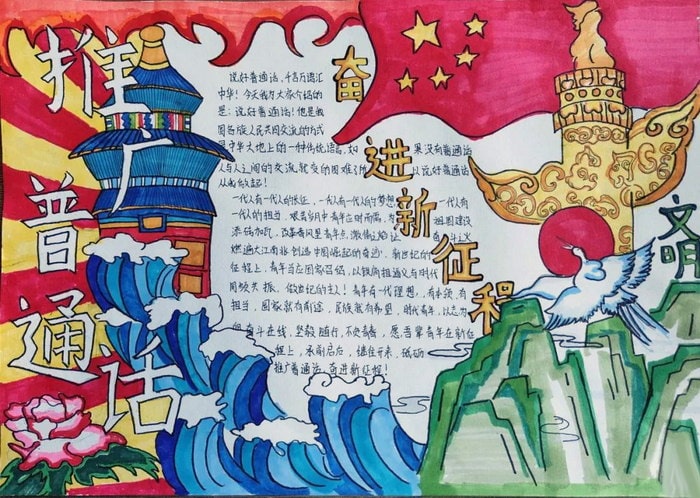 推广普通话
奋进新征程
文明
说好普通话,千言万语汇
中华!今天我为大家介绍的
是:说好普通话!他是我
国各族人民共同交流的方式
是中华大地上的一种传统语言,如果没有普通话
人与人之间的交流就变的困难 以说好普通话
从我做起!
一代人有一代人的长征,一代人有一代人的梦想 一代人有
一代人的担当 艰苦岁月中青年应时而需,为祖国建设
添砖加瓦,改革春风里青年
燃遍大江南北 创造中国崛起的奇迹,新世纪的
征程上,青年当应国家召唤,以锐角担道义与时代
同频共振,做世纪的主人!青年有一代理想,有本领,有
担当,国家就有前途,民族就有希望,时代青年,以志为
奋斗在线,坚毅随行,不负青春,愿吾辈青年在新征
程上,承前启后,继往开来,
推广普通话,奋进新征程!